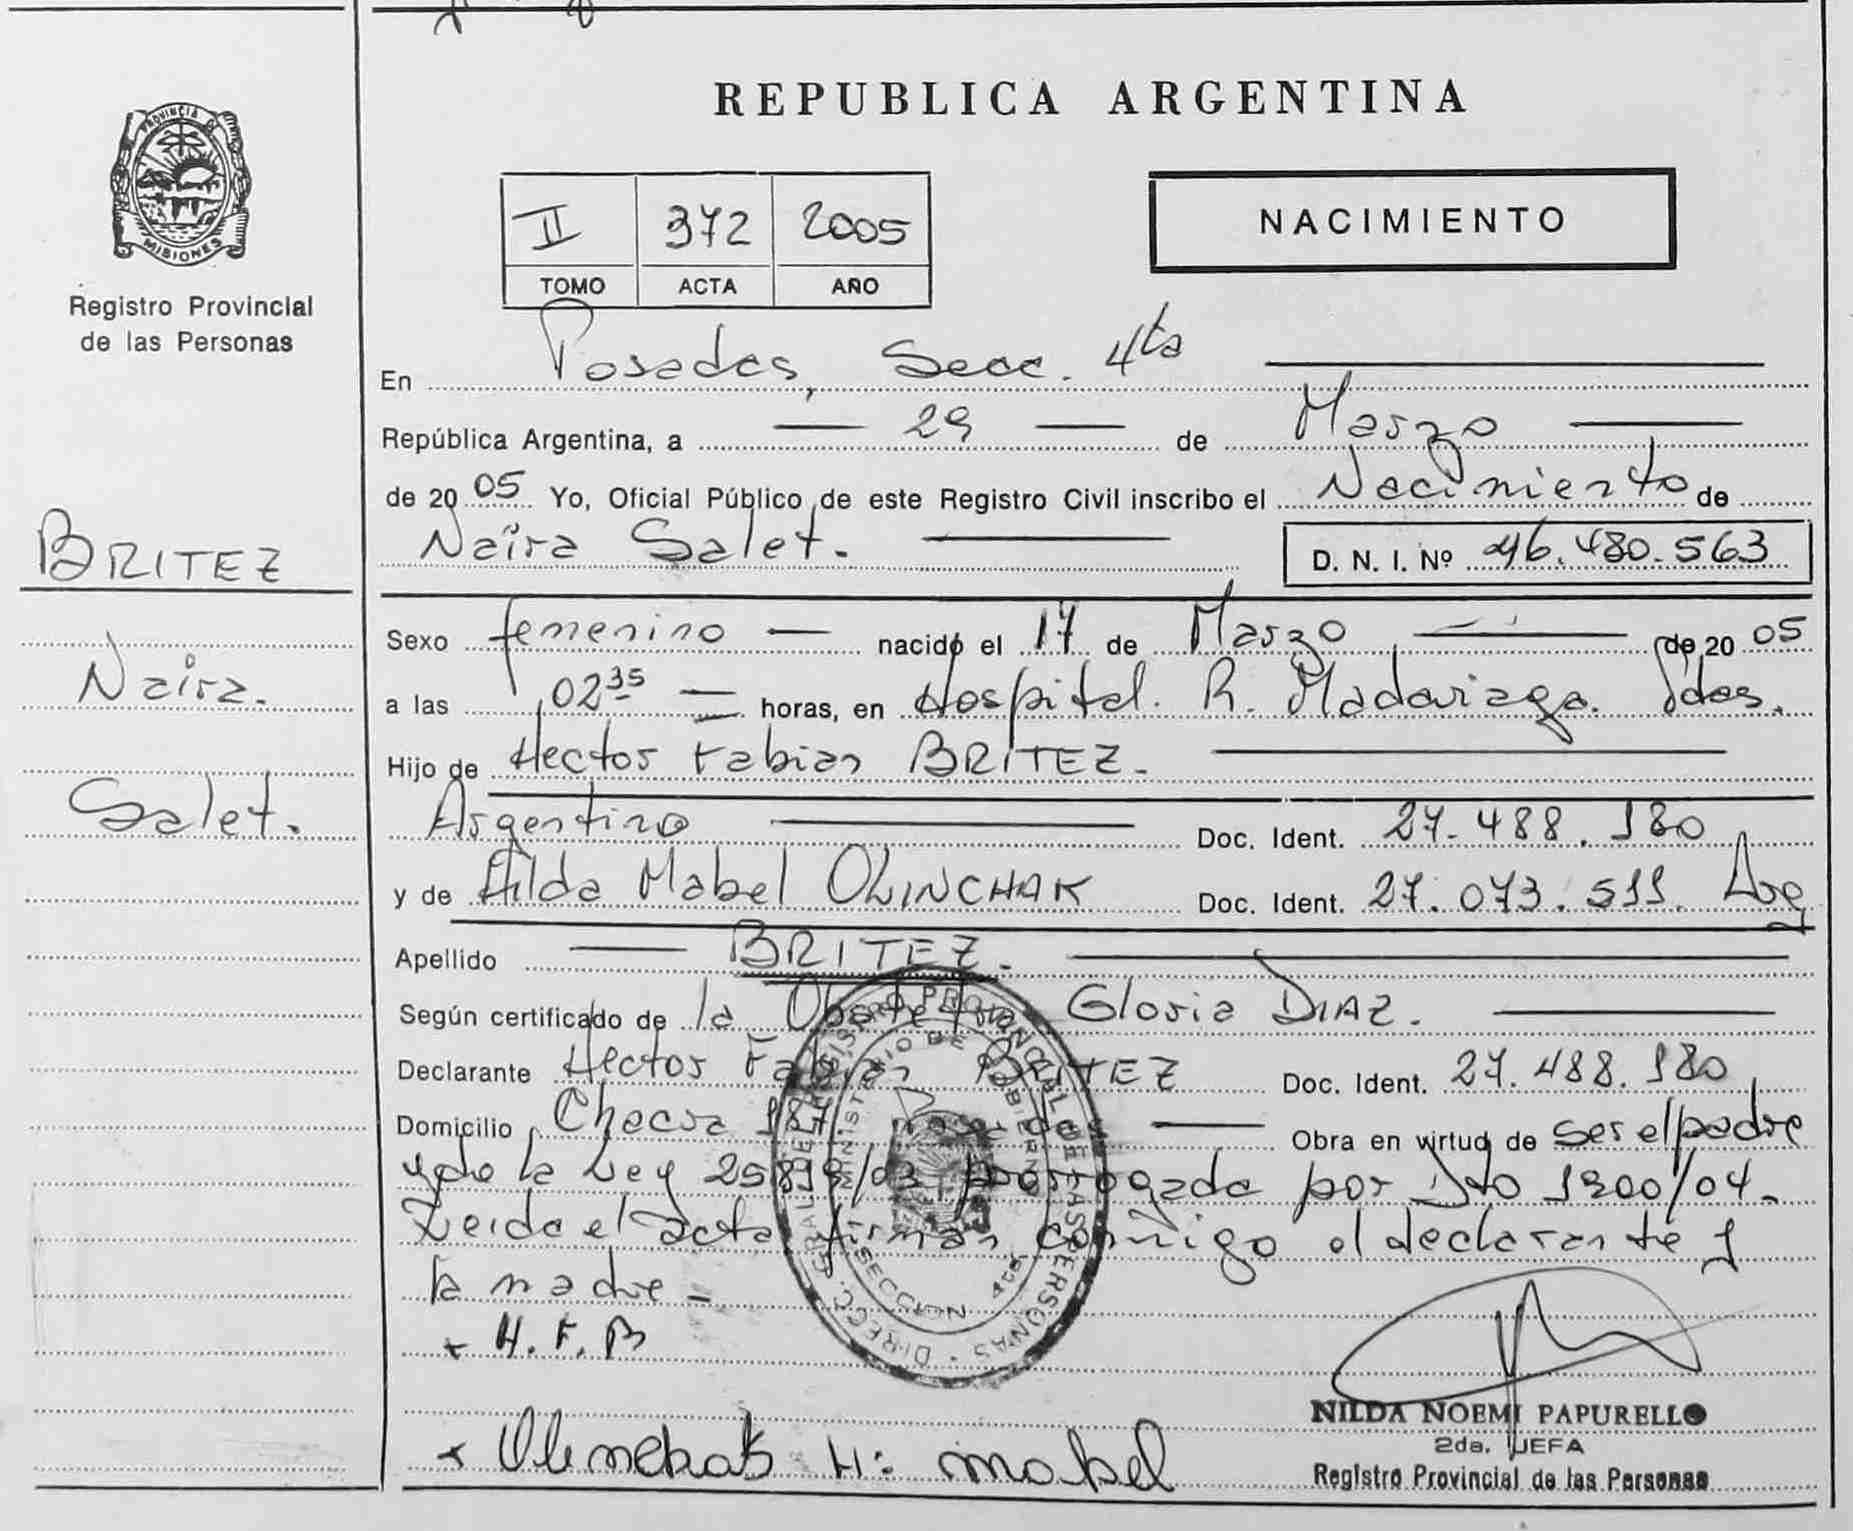 PROVINCIA DE
MISIONES
Registro Provincial
de las Personas
BRITEZ
Naira
Salet.
REPUBLICA ARGENTINA
II 372 2005
TOMO ACTA AÑO
NACIMIENTO
En Posadas, Secc. 4ta
República Argentina, a 29 de Marzo
de 2005 Yo, Oficial Público de este Registro Civil inscribo el Nacimiento de
Naira Salet. D. N. I. Nº 46.480.563
Sexo femenino nacido el 17 de Marzo de 2005
a las 02 35 horas, en Hospital. R. Madariaga. Pdas.
Hijo de Hector Fabian BRITEZ.
Argentino Doc. Ident. 27.488.180
y de Hilda Mabel OLINCHAK Doc. Ident. 27.073.511. Arg
Apellido BRITEZ.
Según certificado de la Obstetra Gloria DIAZ.
Declarante Hector Fabian BRITEZ Doc. Ident. 27.488.180
Domicilio Chacra 187. Posadas Obra en virtud de ser el padre
y de la Ley 25819/03 prorrogada por Dto 1300/04.
Leida el acta firman conmigo el declarante y
la madre
x H. F. B
x Olinchak H: mabel
DIRECC. GRAL. DEL REGISTRO PROVINCIAL DE LAS PERSONAS
MINISTERIO DE GOBIERNO
SECCION 4ta
NILDA NOEMI PAPURELLO
2da. JEFA
Registro Provincial de las Personas